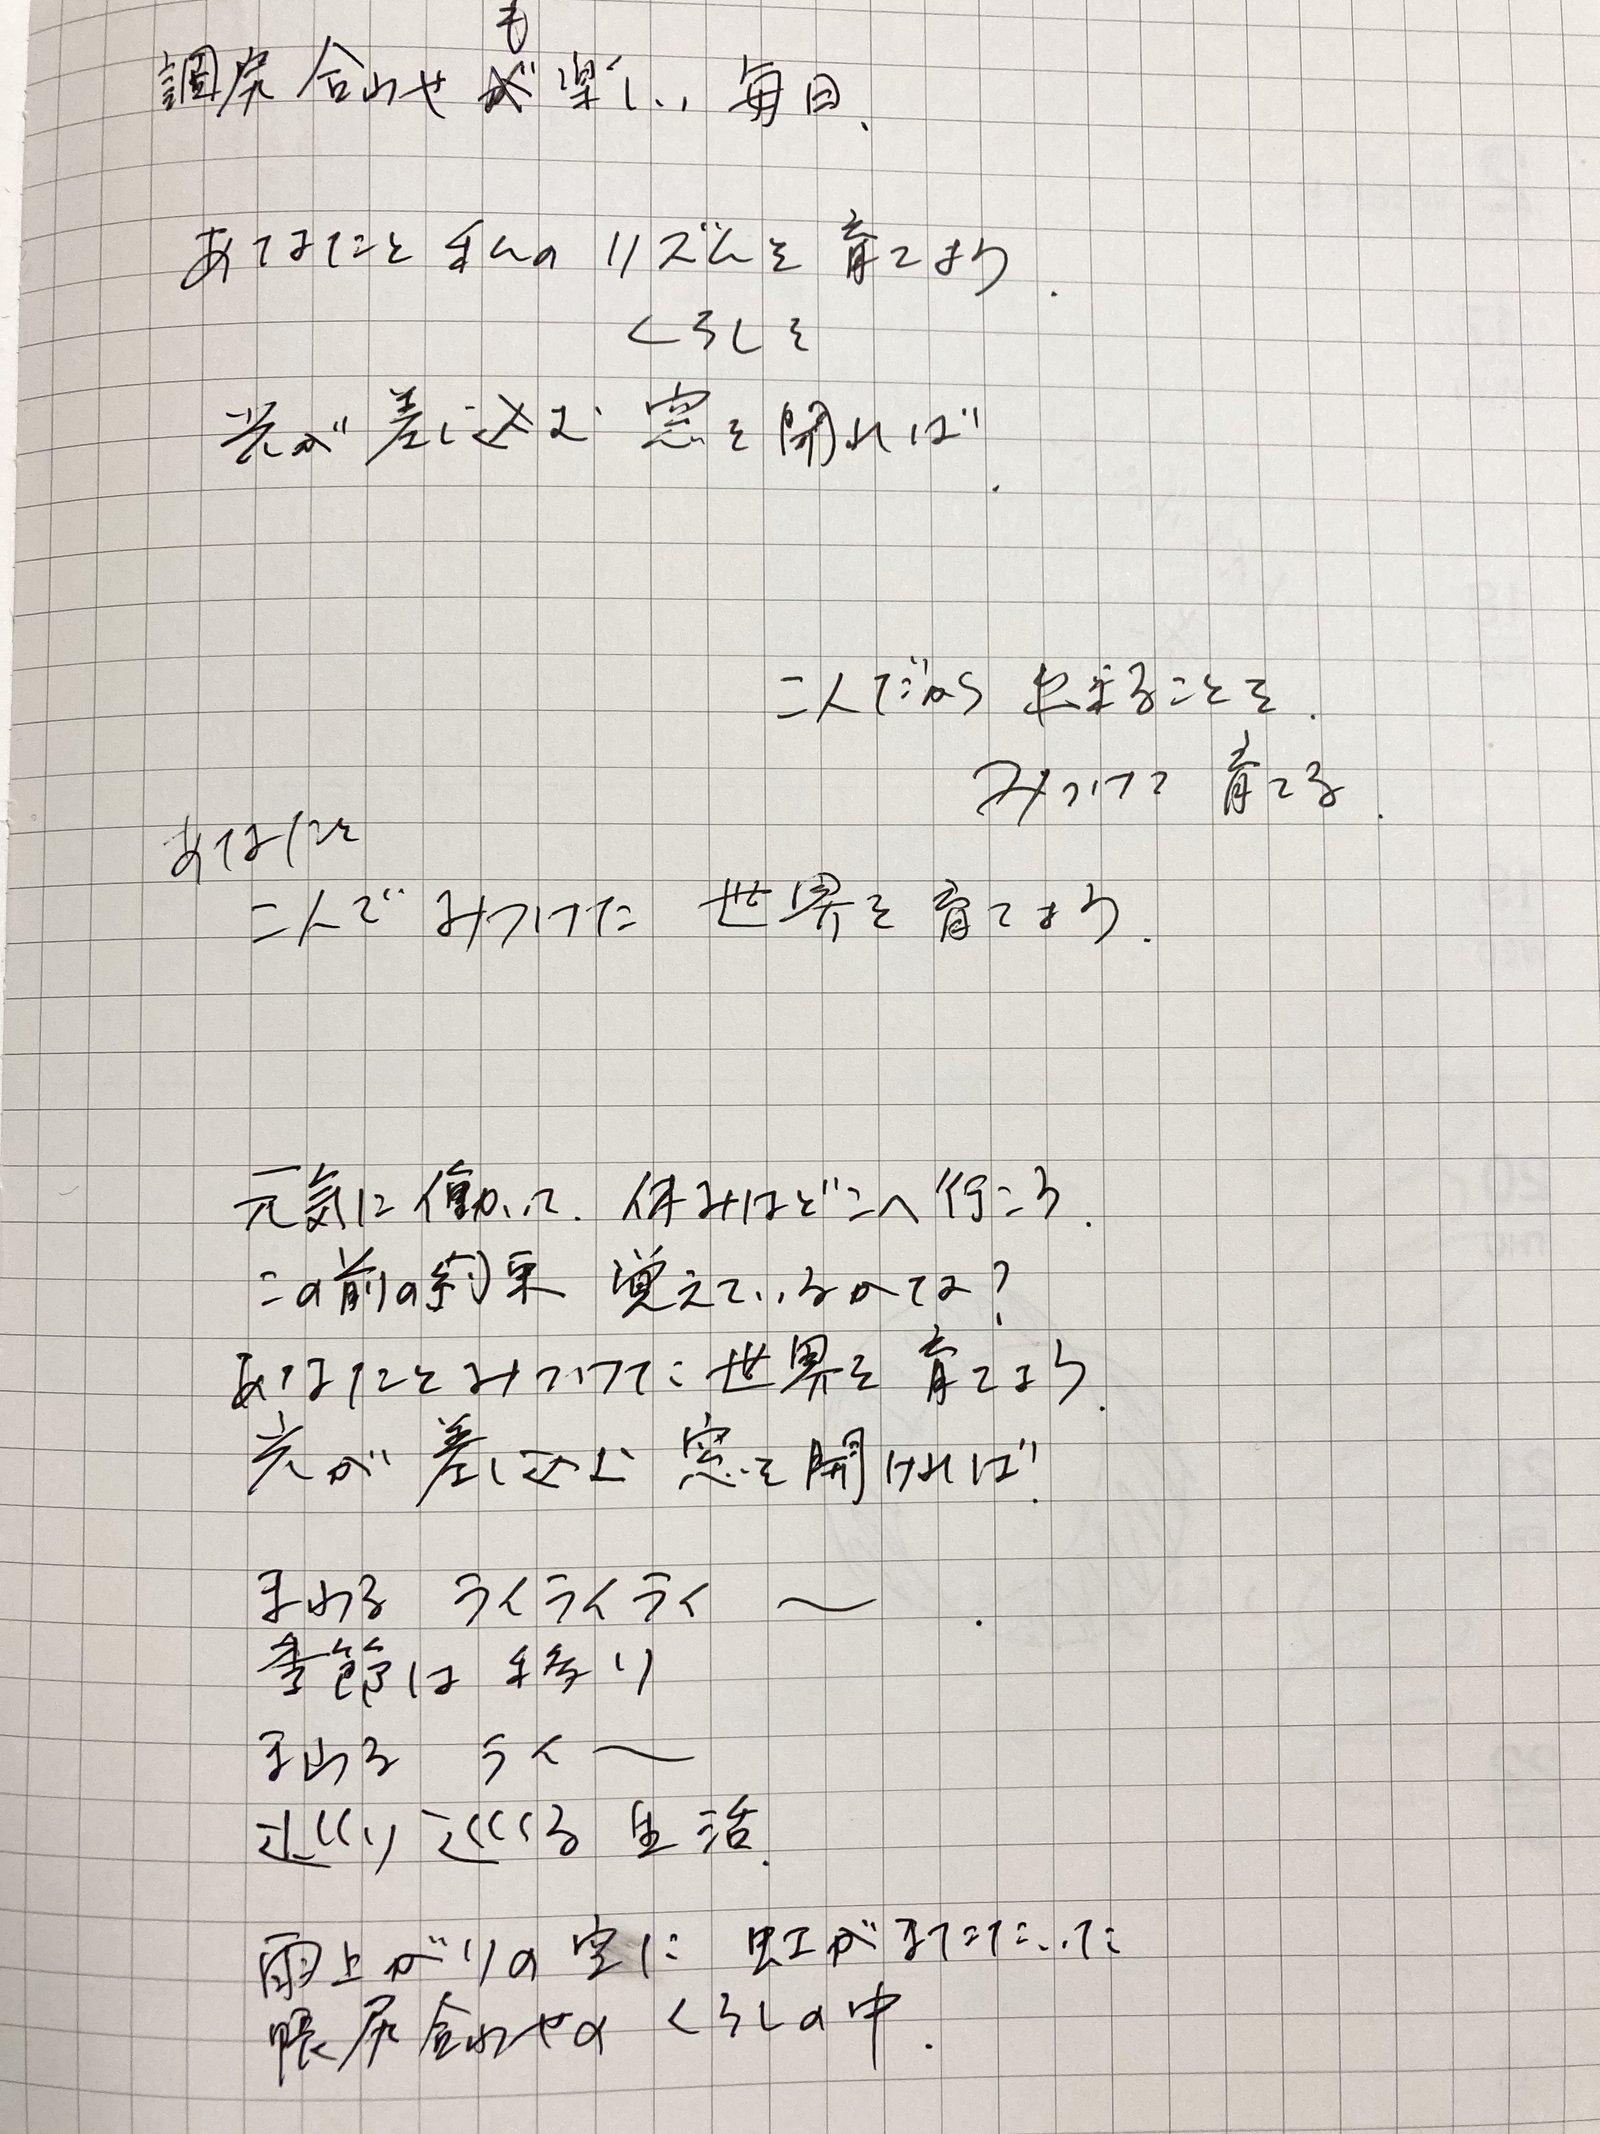 調尻合わせも楽しい毎日、
あなたと私のリズムを育てよう.
くらしを
光が差し込む 窓を開れば.
二人だから 出来ることを.
みつけて 育てる.
あなたと
二人で みつけた 世界を育てよう.
元気に働いて. 休みはどこへ行こう.
この前の約束 覚えているかな?
あなたとみつけた世界を育てよう.
光が差し込む 窓を開ければ.
まわる ライライライ 〜.
季節は移り
まわる ライ〜
巡り巡る生活.
雨上がりの空に 虹がまたたいた
帳尻合わせの くらしの中.